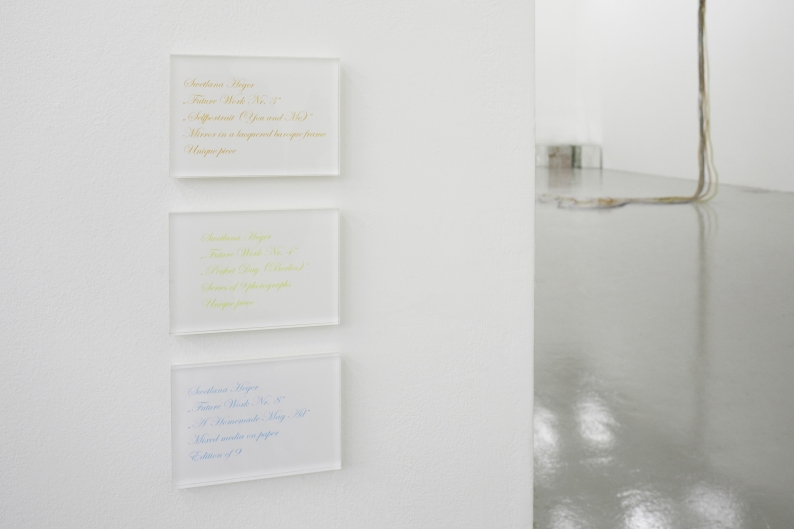 Swetlana Heger
„Future Work No. 3“
„Selfportrait (You and Me)“
Mirror in a lacquered baroque frame
Unique piece
Swetlana Heger
„Future Work No. 4“
„Perfect Day (Berlin)“
Series of 9 photographs
Unique piece
Swetlana Heger
„Future Work No. 8“
„A Homemade May Ad“
Mixed media on paper
Edition of 9